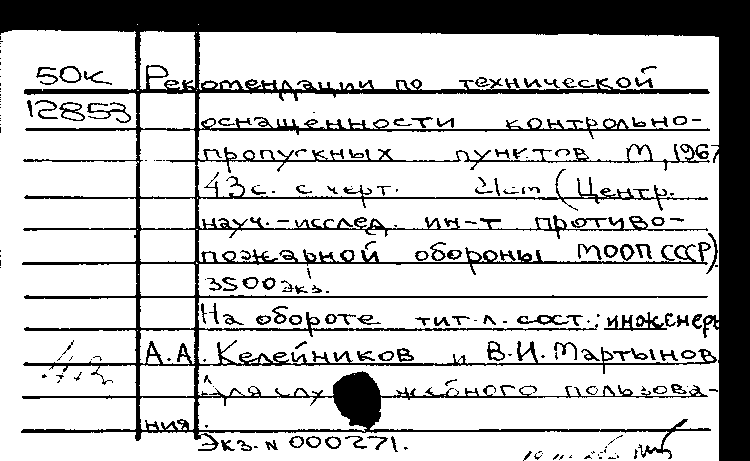 50к Рекомендации по технической
12853 оснащенности контрольно-
пропускных пунктов. М, 1967
43с. с черт. 21см (Центр.
науч.-исслед. ин-т противо-
пожарной обороны МООП СССР)
3500 экз.
На обороте тит.л. сост.: инженеры
А.А. Келейников и В.И. Мартынов
Для служебного пользова-
ния.
Экз. N 000271.